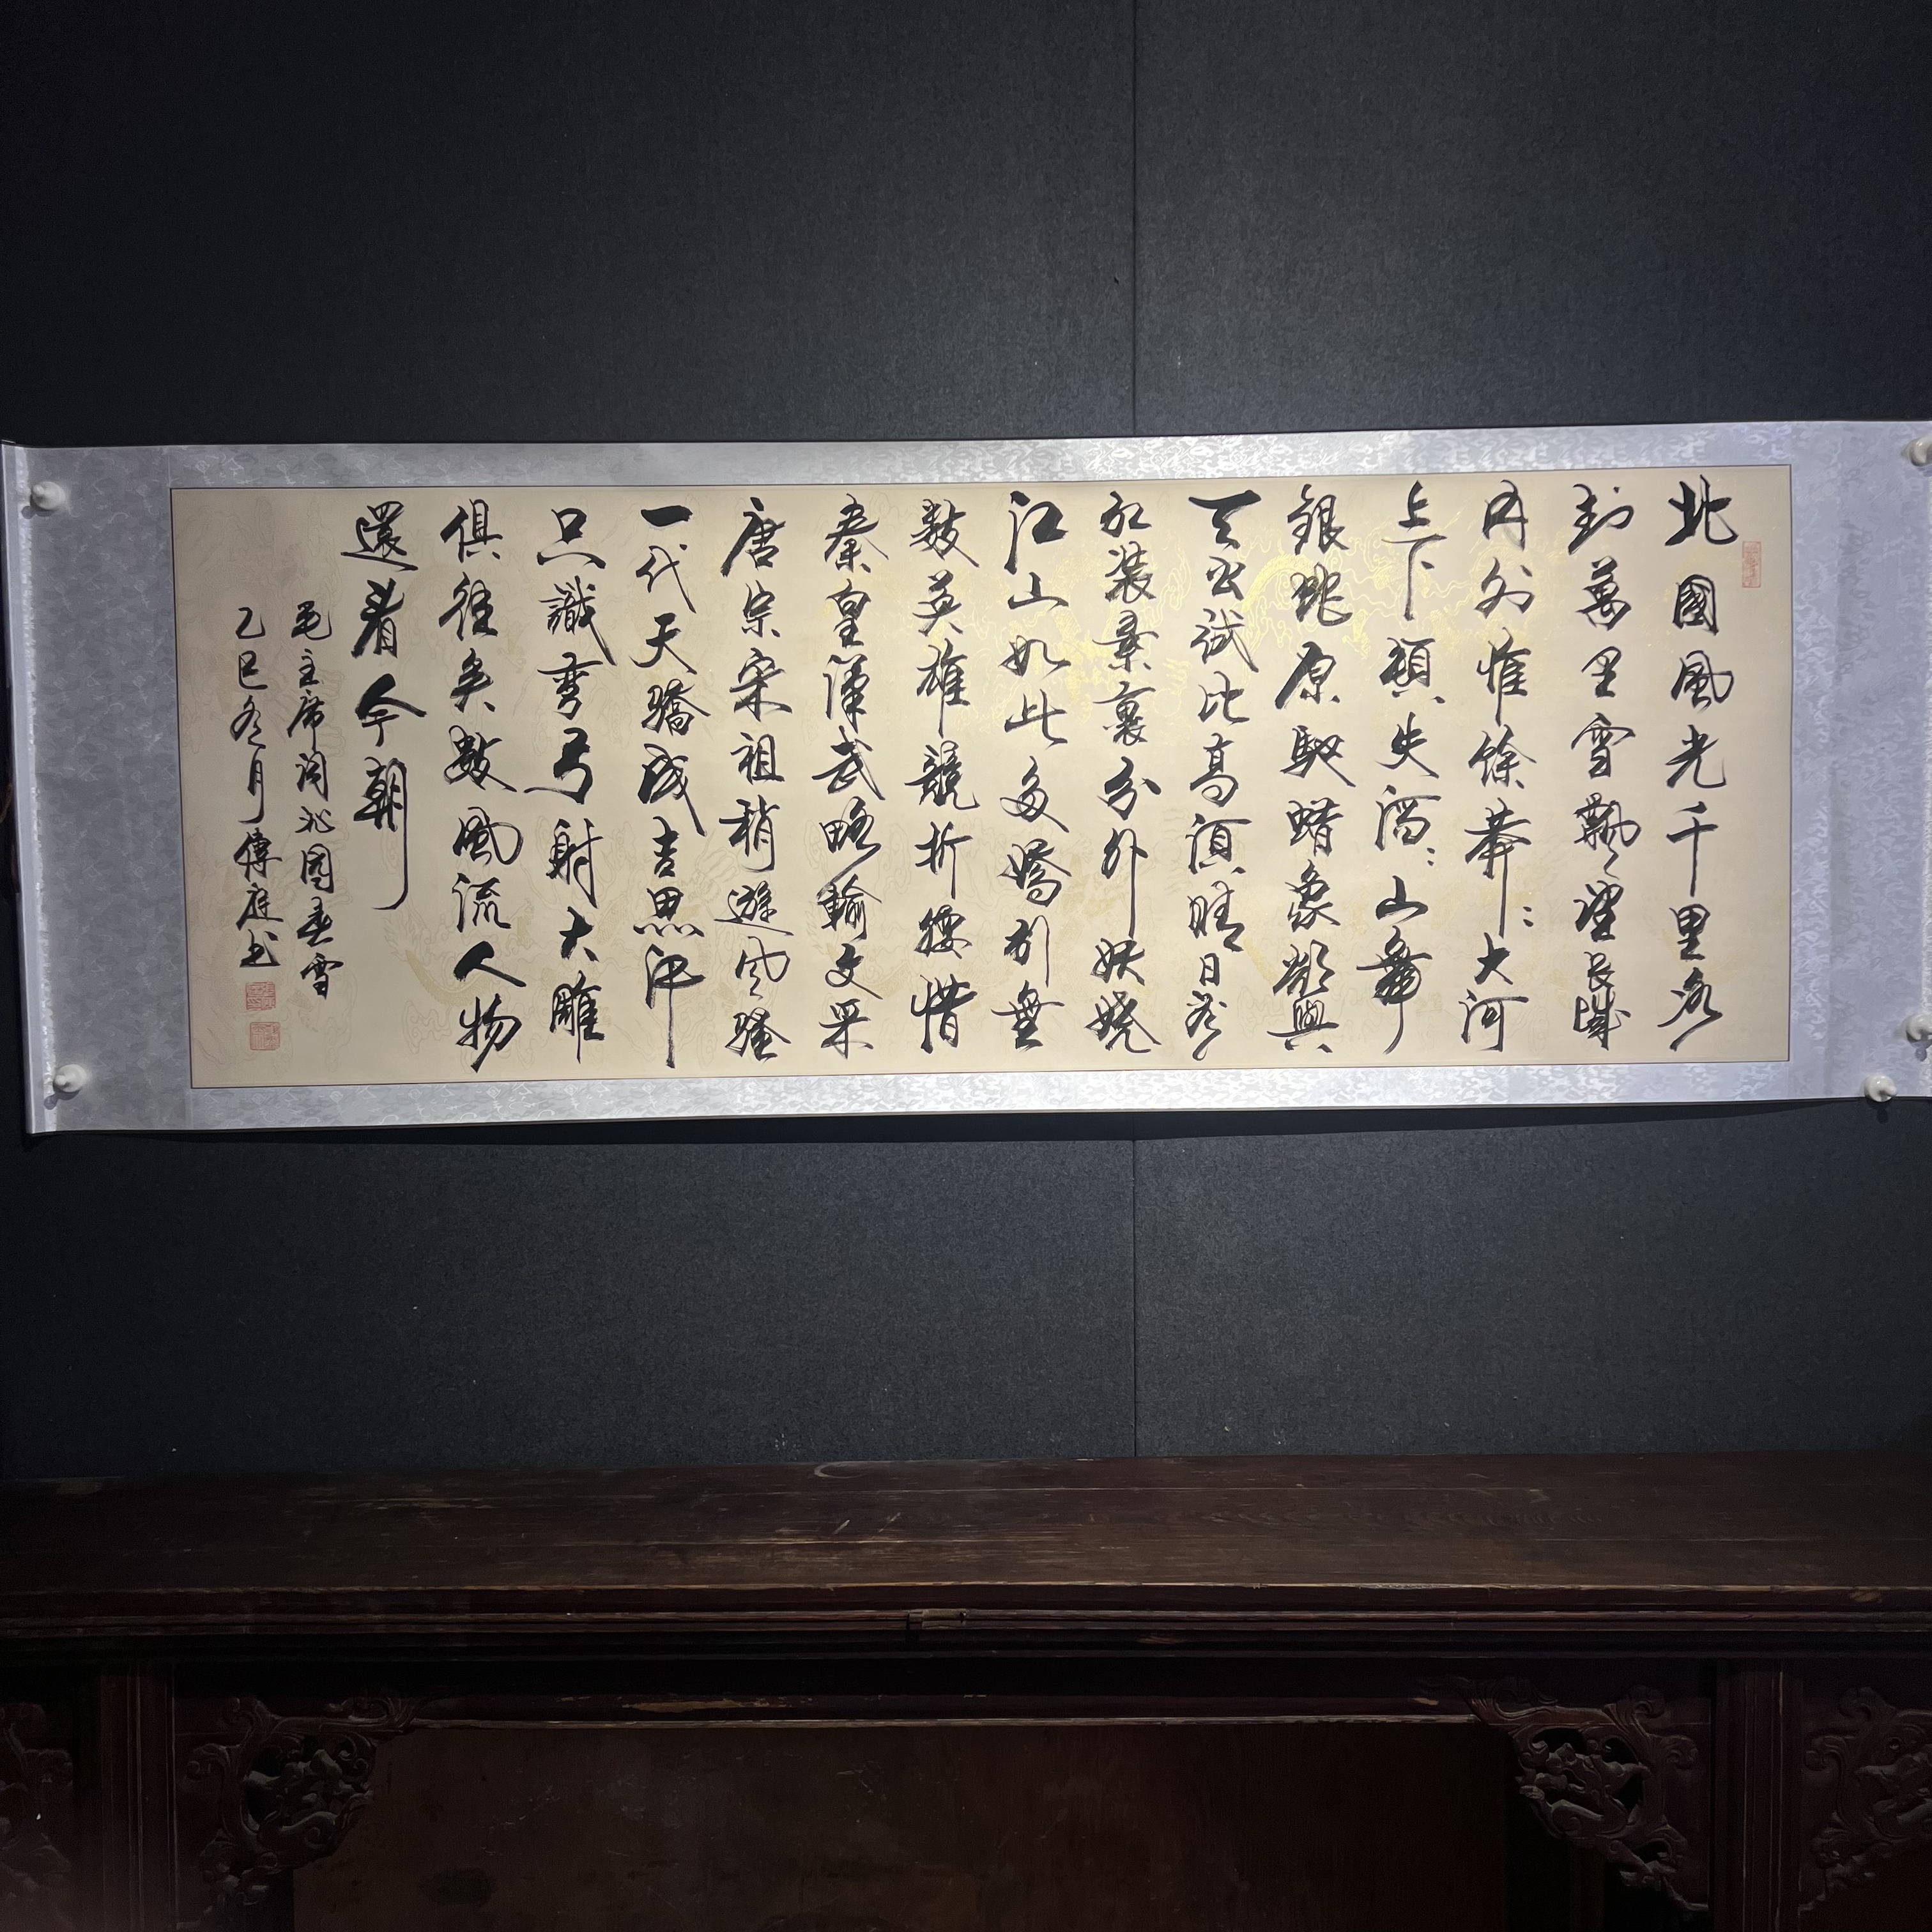 北國風光千里冰
封萬里雪飄〻望長城
内外惟餘莽〻大河
上下頓失滔〻山舞
銀蛇原馳蜡象欲與
天公試比高須晴日看
紅装素裹分外妖嬈
江山如此多嬌引無
數英雄競折腰惜
秦皇漢武略輸文采
唐宗宋祖稍遜風騷
一代天驕成吉思汗
只識彎弓射大雕
俱往矣數風流人物
還看今朝
毛主席詞沁園春雪
乙巳冬月傳庭书